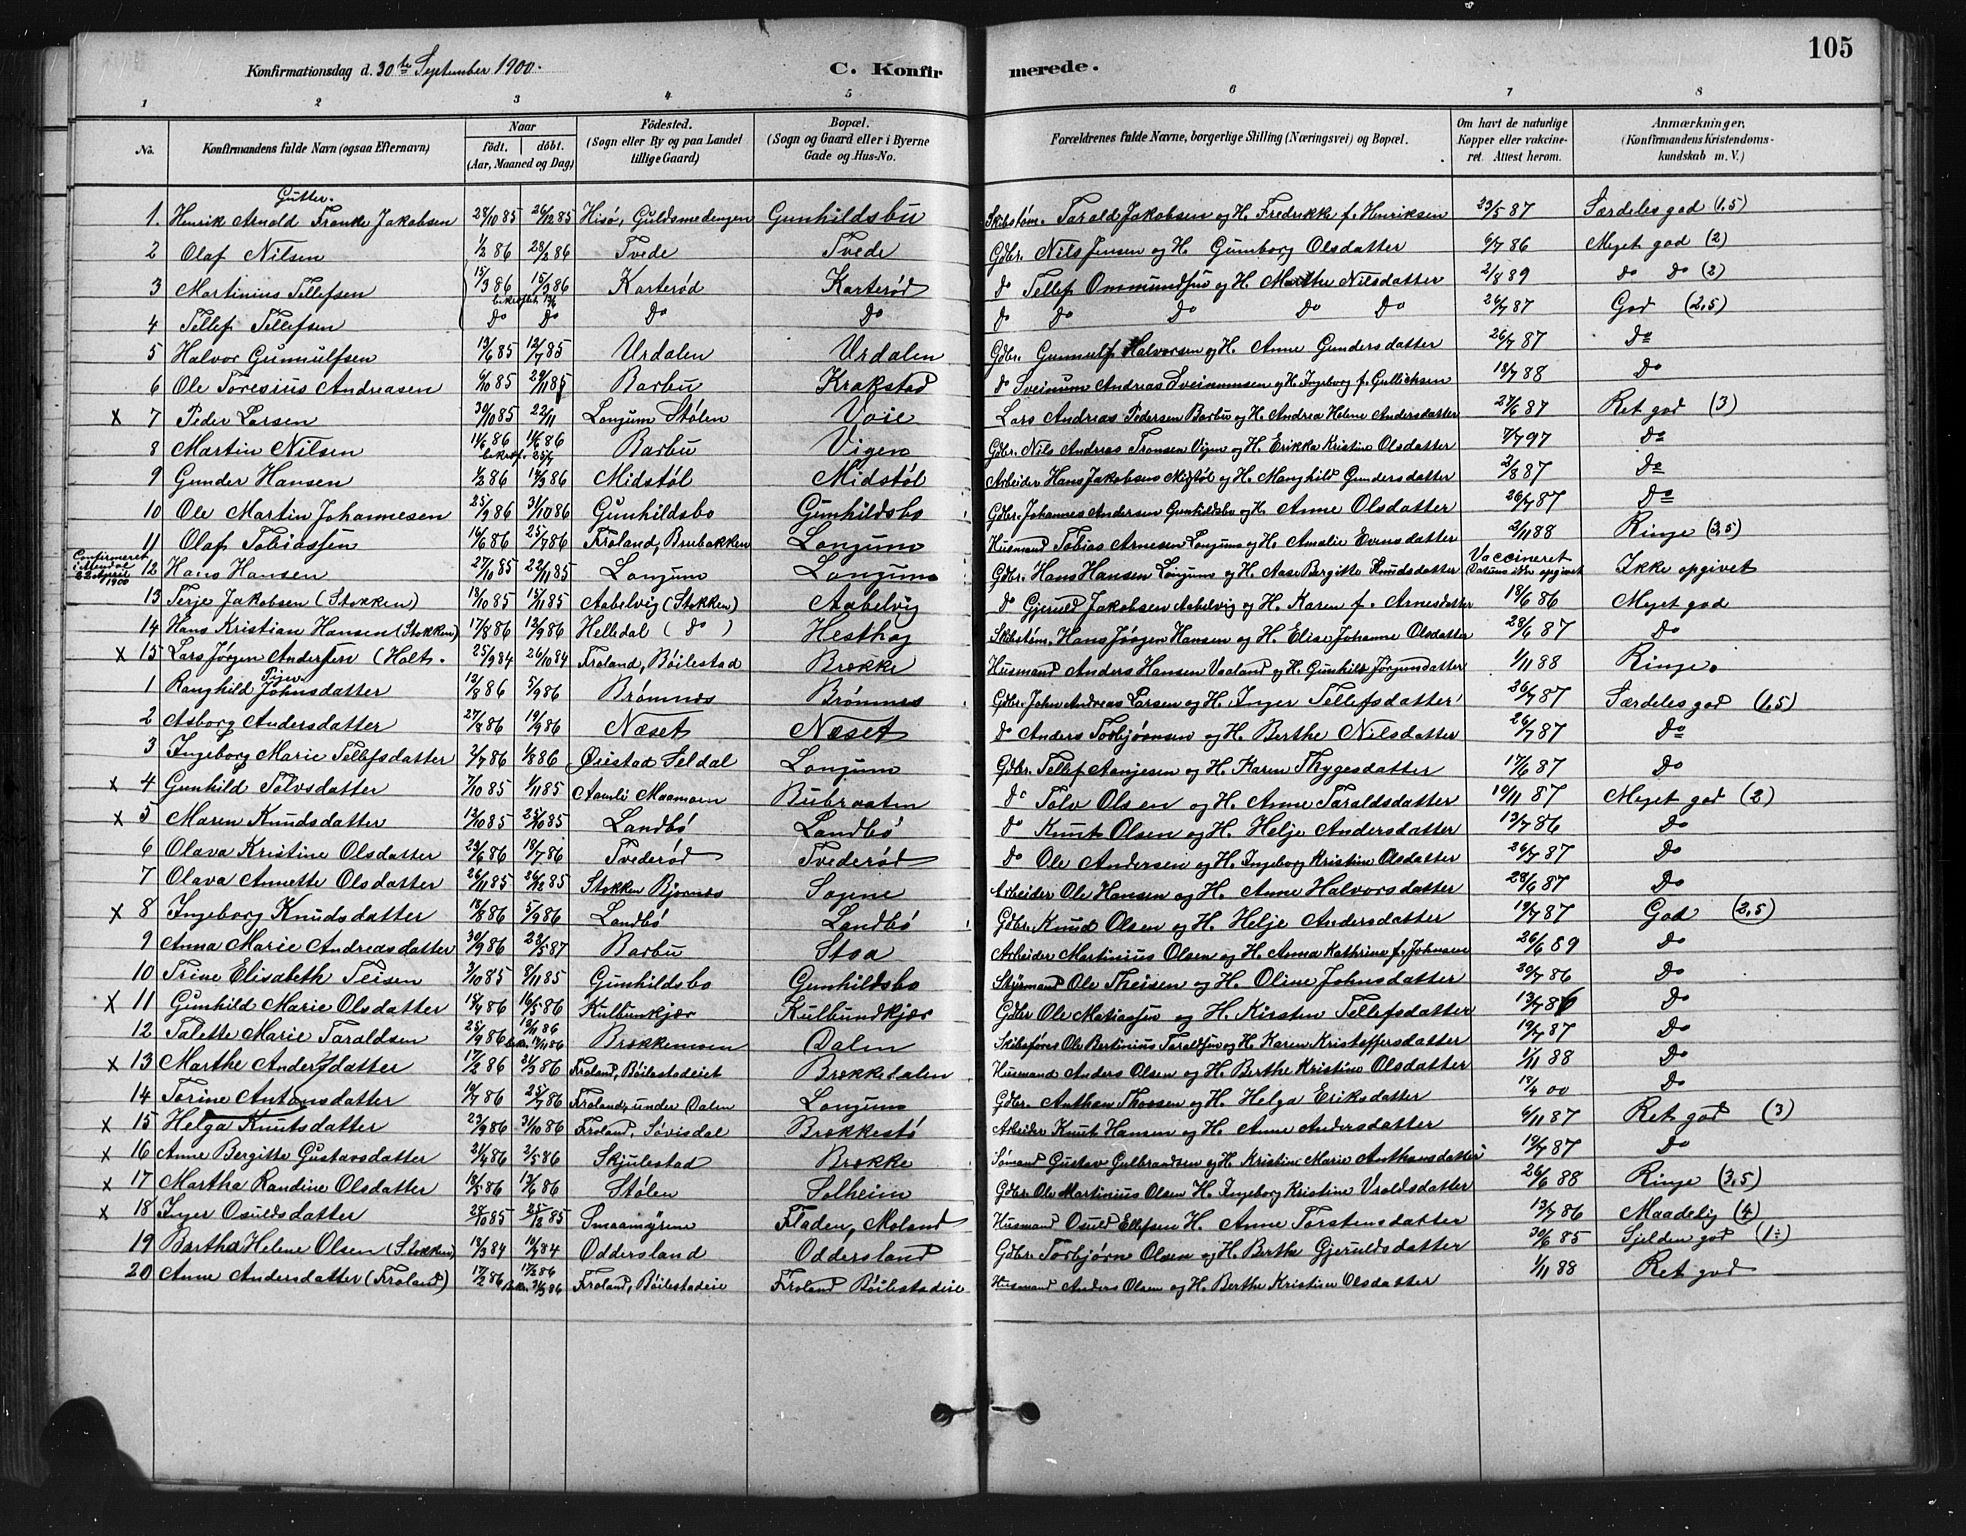 105
Konfirmationsdag d. 30te September 1900. C. Konfirmerede.
1 2 3 4 5 6 7 8
No. Konfirmandens fulde Navn (ogsaa Efternavn) Naar født. døbt. (Aar, Maaned og Dag) Fødested. (Sogn eller By og paa Landet tillige Gaard) Bopæl. (Sogn og Gaard eller i Byerne Gade og Hus-No. Forældrenes fulde Navne, borgerlige Stilling (Næringsvei) og Bopæl. Om havt de naturlige Kopper eller vakcineret. Attest herom. Anmærkninger, (Konfirmandens Kristendomskundskab m. V.)
Gutter.
1. Henrik Arnold Franke Jakobsen 28/10 85 26/12 85 Hisø, Guldsmedengen Gunhildsbu Skibstøm. Tarald Jakobsen og H. Fredrikke f. Henriksen 23/5 87 Særdeles god (1,5)
2 Olaf Nilsen 1/2 86 28/2 86 Tvede Tvede Gdbr. Nils Jensen og H. Gunborg Olsdatter 6/7 86 Meget god (2)
3 Martinius Tellefsen 15/3 86 15/3 86 Karterød Karterød Do Tellef Ommundsen og H. Marthe Nilsdatter 2/8 89 Do Do (2)
4 Tellef Tellefsen Do Do Do Do Do Do Do Do Do 26/7 87 God (2,5)
5 Halvor Gunnulfsen 13/6 85 12/7 85 Urdalen Urdalen Gdbr. Gunnulf Halvorsen og H. Anne Gundersdatter 26/7 87 Do
6 Ole Toresius Andreasen 6/10 85 29/11 85 Barbu Krakstad Do Sveinum Andreas Sveinumsen og H. Ingeborg f. Gullichsen 18/7 88 Do
x 7 Peder Larsen 30/10 85 22/11 Longum Stølen Voie Lars Andreas Pedersen Barbu og H. Andrea Helene Andersdatter 27/6 87 Ret god (3)
8 Martin Nilsen 11/6 86 11/6 86 Barbu Vigen Gdbr. Nils Andreas Tronsen Vigen og H. Erikka Kristine Olsdatter 7/7 97 Do
9 Gunder Hansen 1/2 86 14/3 86 Midstøl Midstøl Arbeider Hans Jakobsen Midstøl og H. Manghild Gundersdatter 2/8 87 Do
10 Ole Martin Johannesen 25/9 86 31/10 86 Gunhildsbo Gunhildsbo Gdbr. Johannes Andersen Gunhildsbo og H. Anne Olsdatter 26/7 87 Do
11 Olaf Tobiassen 16/6 86 25/7 86 Froland, Brubakken Longum Husmand Tobias Arnesen Longum og H. Amalie Evensdatter 2/11 88 Ringe (3,5)
Confirmeret i Arendal 22 April 1900 12 Hans Hansen 27/10 85 22/11 85 Longum Longum Gdbr. Hans Hansen Longum og H. Aase Bergitte Knudsdatter Vaccineret (Datum ikke opgivet Ikke opgivet
13 Terje Jakobsen (Stokken) 13/10 85 15/11 85 Aabelvig (Stokken) Aabelvig Do Gjeruld Jakobsen Aabelvig og H. Karen f. Arnesdatter 18/6 86 Meget god
14 Hans Kristian Hansen (Stokken) 17/8 86 12/9 86 Helledal ( Do ) Hesthag Skibstøm. Hans Jørgen Hansen og H. Elise Johanne Olsdatter 28/6 87 Do
x 15 Lars Jørgen Andersen (Holt. 25/9 84 26/10 84 Froland, Bøilestad Brekke Husmand Anders Hansen Vaaland og H. Gunhild Jørgensdatter 1/11 88 Ringe.
Piger.
1 Ranghild Johnsdatter 12/8 86 5/9 86 Brømnes Brømnes Gdbr. John Andreas Larsen og H. Inger Tellefsdatter 26/7 87 Særdeles god (1,5)
2 Asborg Andersdatter 27/8 86 19/9 86 Næset Næset Do Anders Torbjørnsen og H. Berthe Nilsdatter 26/7 87 Do
3 Ingeborg Marie Tellefsdatter 3/7 86 1/8 86 Øiestad Seldal Longum Gdbr. Tellef Aanjesen og H. Karen Thygesdatter 17/6 87 Do
x 4 Gunhild Tolvsdatter 7/10 85 1/11 85 Aamli Maamoen Bubraaten Do Tolv Olsen og H. Anne Taraldsdatter 19/11 87 Meget god (2)
x 5 Maren Knudsdatter 13/10 85 25/10 85 Landbø Landbø Do Knut Olsen og H. Helje Andersdatter 13/7 86 Do
6 Olava Kristine Olsdatter 23/6 86 18/7 86 Tvederød Tvederød Do Ole Andersen og H. Ingeborg Kristine Olsdatter 26/7 87 Do
7 Olava Annette Olsdatter 26/11 85 26/12 85 Stokken Bjørnes Sagene Arbeider Ole Hansen og H. Anne Halvorsdatter 28/6 87 Do
x 8 Ingeborg Knudsdatter 18/8 86 5/9 86 Landbø Landbø Gdbr. Knud Olsen og H. Helje Andersdatter 19/7 87 God (2,5)
9 Anna Marie Andreasdatter 30/9 86 29/5 87 Barbu Stoa Arbeider Martinius Olsen og H. Anna Kathrine f. Johnsen 26/6 89 Do
10 Trine Elisabeth Teisen 3/10 85 8/11 85 Gunhildsbo Gunhildsbo Styrmand Ole Theisen og H. Oline Johnsdatter 20/7 86 Do
x 11 Gunhild Marie Olsdatter 18/4 86 16/5 86 Kulbunkjær Kulbundkjær Gdbr Ole Matiassen og H. Kirsten Tellefsdatter 13/7 86 Do
12 Talette Marie Taraldsen 25/9 86 Brekkemoen Dalen Skibsfører Ole Bertinius Taraldsen og H. Karen Kristoffersdatter 19/7 87 Do
x 13 Marthe Andersdatter 17/2 86 21/3 86 Froland, Bøilestadeiet Brekkedalen Husmand Anders Olsen og H. Berthe Kristine Olsdatter 1/11 88 Do
14 Torine Antonsdatter 10/7 86 25/7 86 Froland, under Dalen Longum Gdbr. Anthon Thorsen og H. Helga Eriksdatter 18/4 00 Do
x 15 Helga Knutsdatter 23/9 86 31/10 86 Froland, Søvisdal Brekkestø Arbeider Knut Hansen og H. Anne Andersdatter 6/11 87 Ret god (3)
x 16 Anne Bergitte Gustavsdatter 21/4 86 2/5 86 Skjulestad Brekke Sømand Gustav Gulbrandsen og H. Kristine Marie Anthonsdatter 19/7 87 Do
x 17 Martha Randine Olsdatter 18/5 86 13/6 86 Stølen Solheim Gdbr. Ole Martinius Olsen H. Ingeborg Kristine Vraldsdatter 26/6 88 Ringe (3,5)
x 18 Inger Osuldsdatter 28/10 85 25/12 85 Smaamyrene Fladen, Moland Husmand Osuld Ellefsen H. Anne Torstensdatter 13/7 86 Maadelig (4)
19 Bertha Helene Olsen (Stokken) 18/3 84 14/4 84 Oddersland Oddersland Gdbr. Torbjørn Olsen og H. Berthe Gjeruldsdatter 30/6 85 Sjelden god (1÷)
20 Anne Andersdatter (Froland) 17/2 86 17/2 86 Bekr. 21/3 86 Froland, Bøilestadeie Froland Bøilestadeie Husmand Anders Olsen og H. Berthe Kristine Olsdatter 1/11 88 Ret god